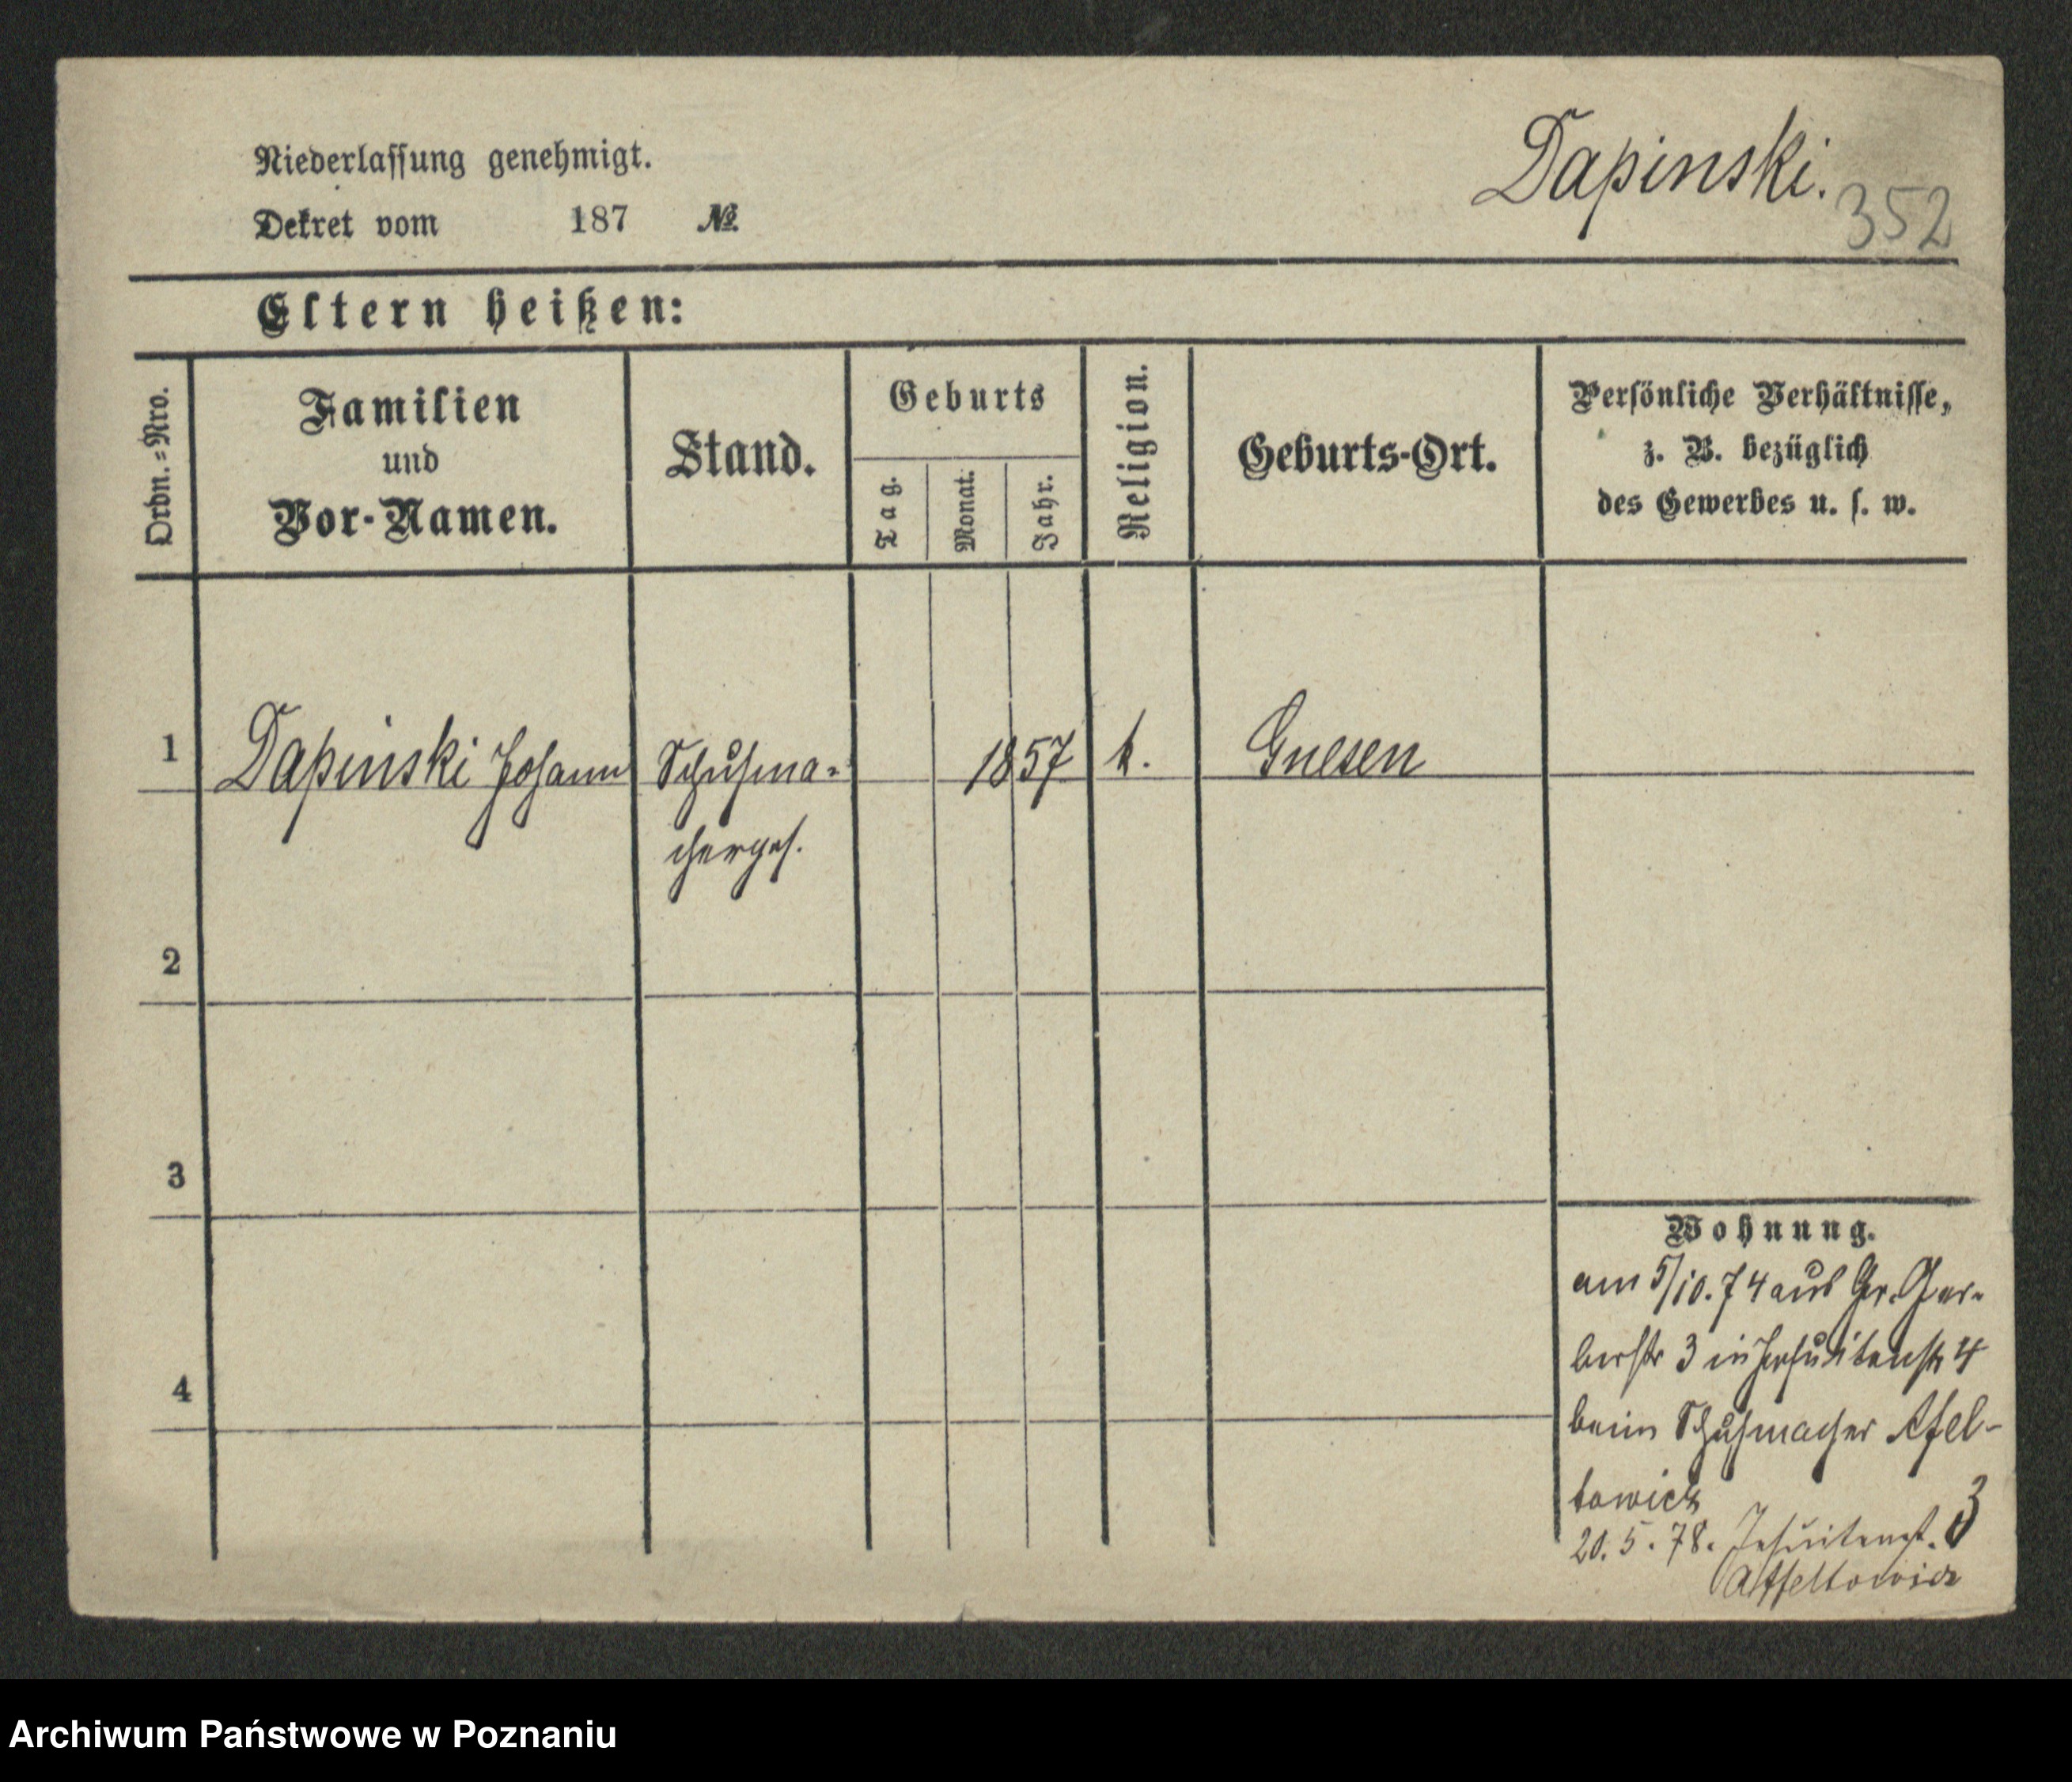 Niederlassung genehmigt.
Dekret vom 187 №
Dapinski.
352
Eltern heißen:
Ordn.=Nro.
Familien
und
Vor-Namen.
Stand.
Geburts
Tag.
Monat.
Jahr.
Religion.
Geburts-Ort.
Persönliche Verhältnisse,
z. B. bezüglich
des Gewerbes u. s. w.
1 Dapinski Johann Schuhma- 1857 k. Gnesen
cherges.
2
3
4
Wohnung.
am 5/10.74 aus Gr. Ger-
berstr 3 in Jesuitenstr 4
beim Schuhmacher Afel-
towicz
20.5.78. Jesuitenst. 3
Affeltowicz
Archiwum Państwowe w Poznaniu